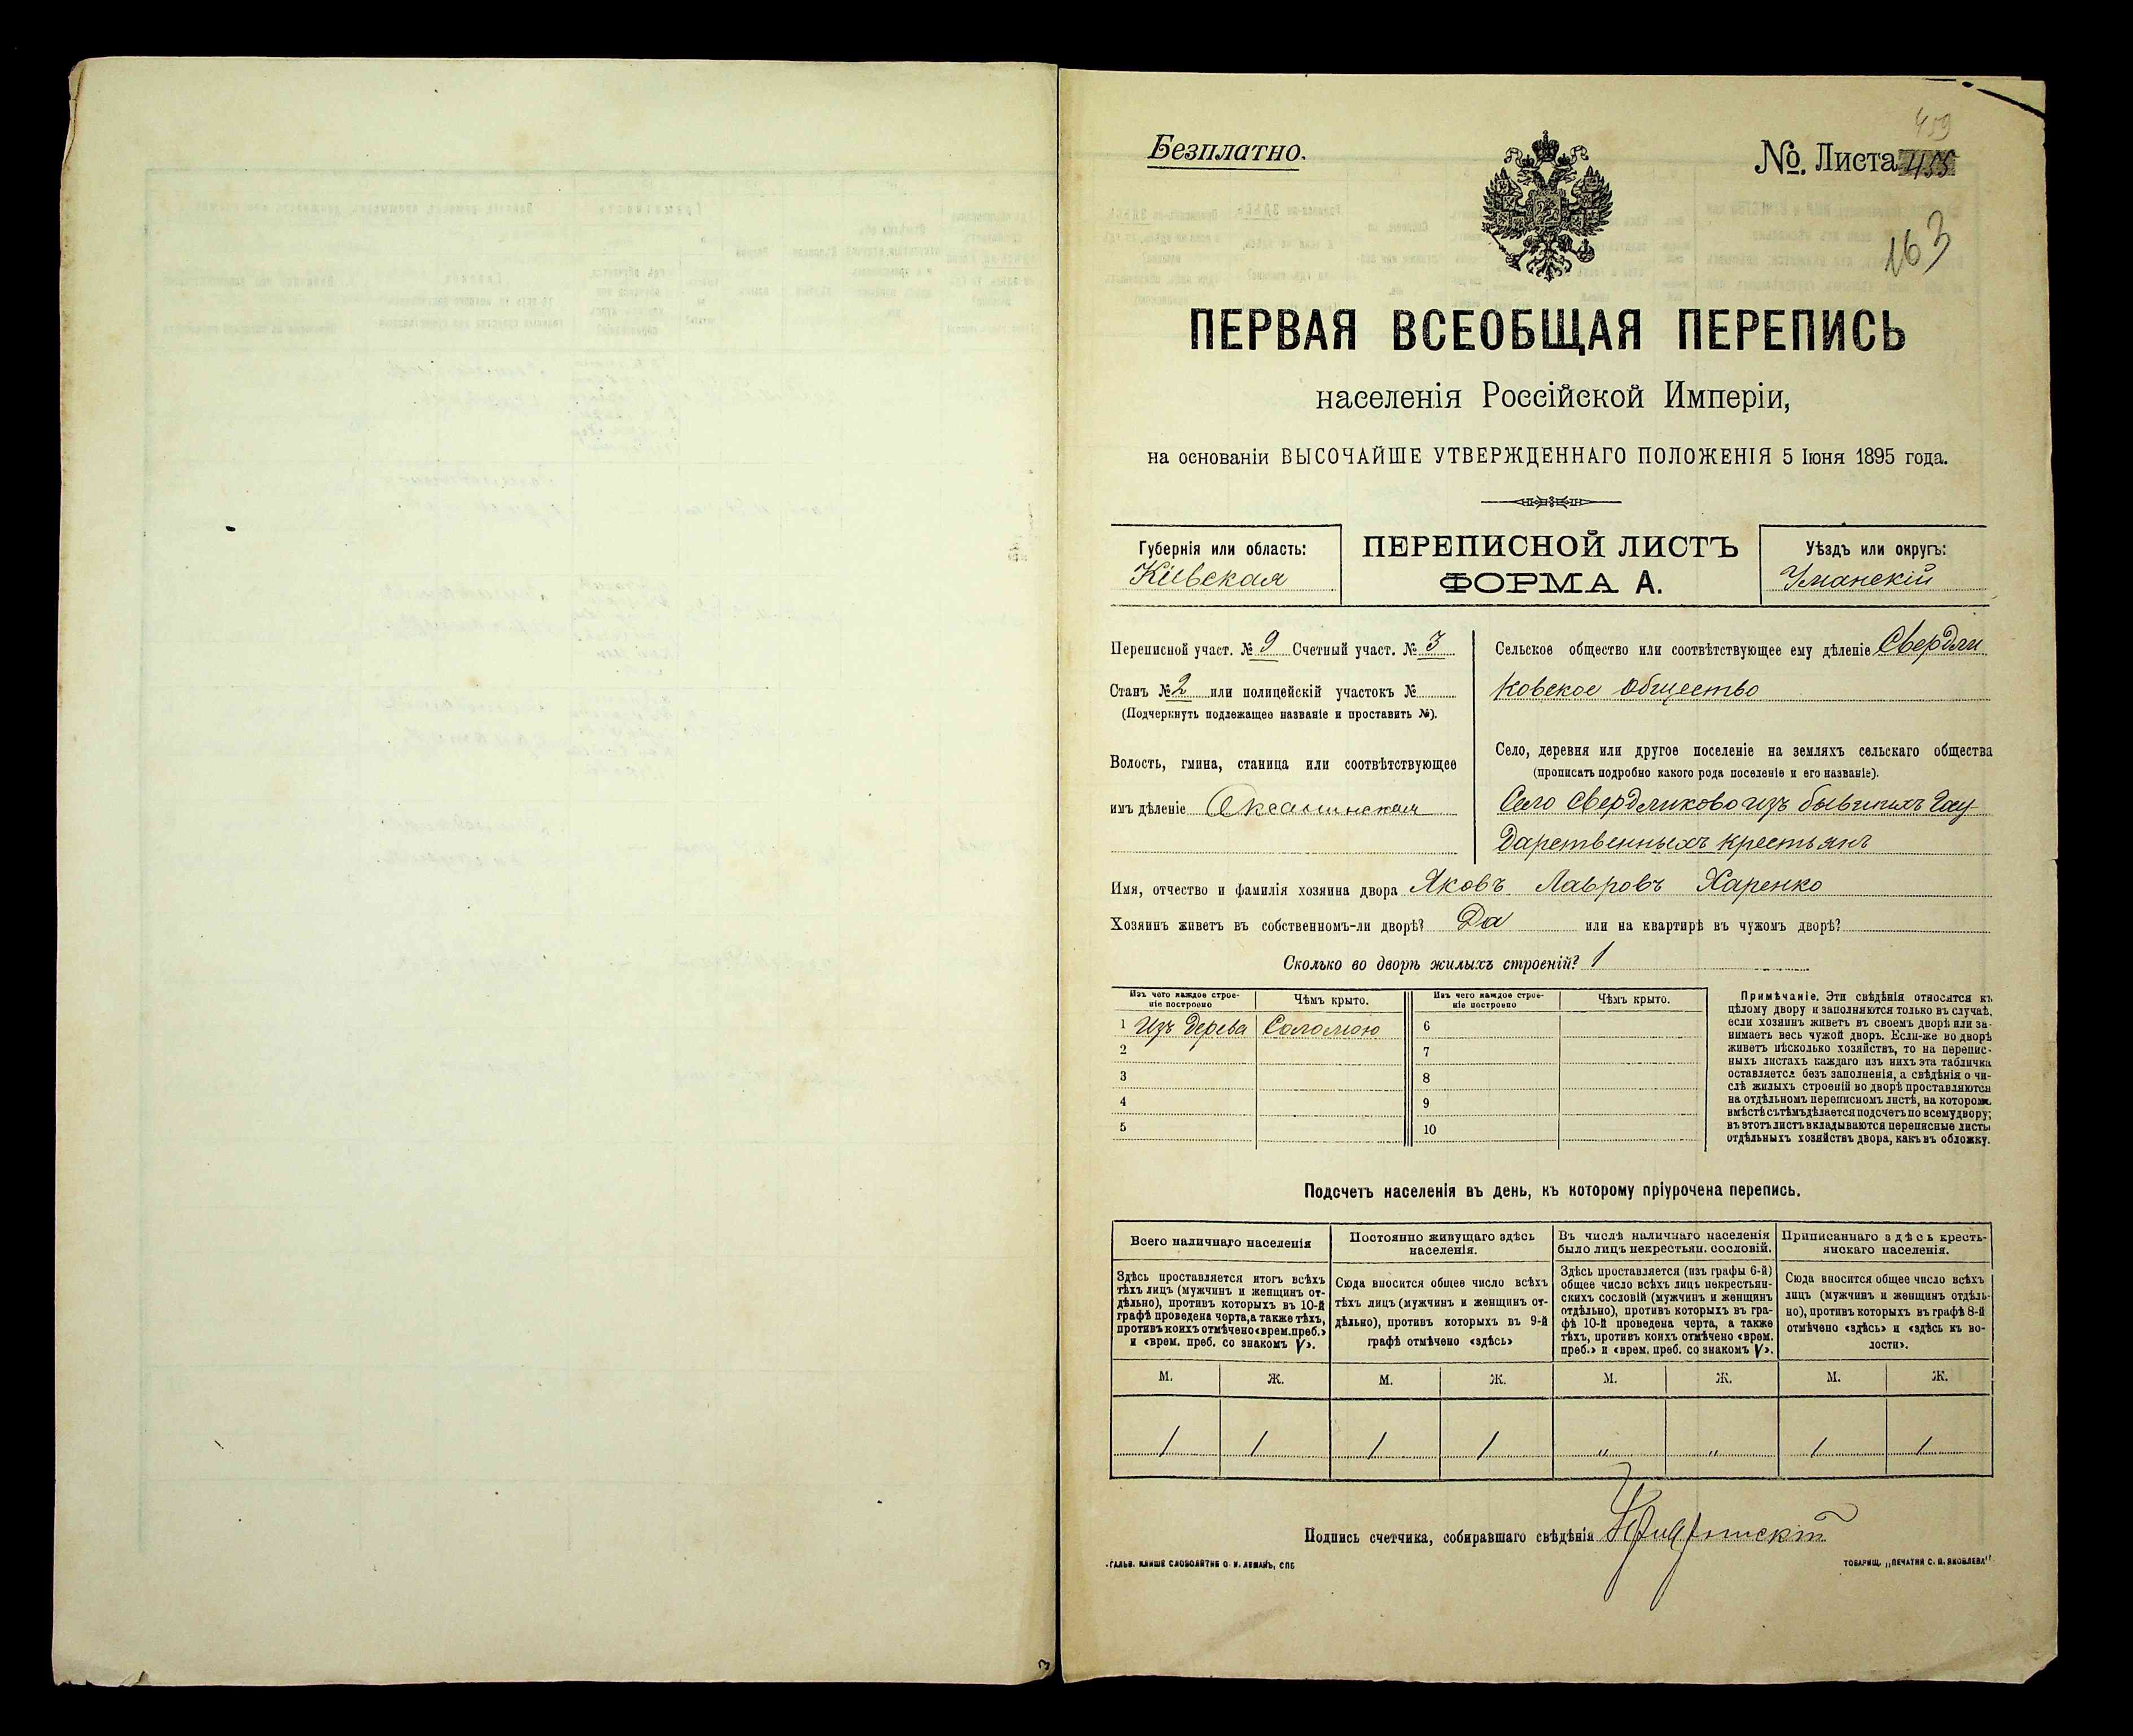 459
Безплатно.
№. Листа 455
163
ПЕРВАЯ ВСЕОБЩАЯ ПЕРЕПИСЬ
населенія Россійской Имперіи,
на основаніи ВЫСОЧАЙШЕ УТВЕРЖДЕННАГО ПОЛОЖЕНІЯ 5 Іюня 1895 года.
Губернія или область:
Кіевская
ПЕРЕПИСНОЙ ЛИСТЪ
ФОРМА А.
Уѣздъ или округъ:
Уманскій
Переписной участ. № 9 Счетный участ. № 3
Станъ № 2 или полицейскій участокъ №
(Подчеркнуть подлежащее названіе и проставить №).
Волость, гмина, станица или соотвѣтствующее
имъ дѣленіе Оксанинская
Сельское общество или соотвѣтствующее ему дѣленіе Свердли
ковское общество
Село, деревня или другое поселеніе на земляхъ сельскаго общества
(прописать подробно какого рода поселеніе и его названіе).
Село Свердликово изъ бывшихъ Госу
дарственныхъ крестьянъ
Имя, отчество и фамилія хозяина двора Яковъ Лавровъ Харенко
Хозяинъ живетъ въ собственномъ-ли дворѣ? Да или на квартирѣ въ чужомъ дворѣ?
Сколько во дворѣ жилыхъ строеній? 1
Изъ чего каждое строе-
ніе построено
Чѣмъ крыто.
Изъ чего каждое строе-
ніе построено
Чѣмъ крыто.
1 Изъ дерева Соломою 6
2 7
3 8
4 9
5 10
Примѣчаніе. Эти свѣдѣнія относятся къ
цѣлому двору и заполняются только въ случаѣ,
если хозяинъ живетъ въ своемъ дворѣ или за-
нимаетъ весь чужой дворъ. Если-же во дворѣ
живетъ нѣсколько хозяйствъ, то на перепис-
ныхъ листахъ каждаго изъ нихъ эта табличка
оставляется безъ заполненія, а свѣдѣнія о чи-
слѣ жилыхъ строеній во дворѣ проставляются
на отдѣльномъ переписномъ листѣ, на которомъ
вмѣстѣ съ тѣмъ дѣлается подсчетъ по всему двору;
въ этотъ листъ вкладываются переписные листы
отдѣльныхъ хозяйствъ двора, какъ въ обложку.
Подсчетъ населенія въ день, къ которому пріурочена перепись.
Всего наличнаго населенія
Здѣсь проставляется итогъ всѣхъ
тѣхъ лицъ (мужчинъ и женщинъ от-
дѣльно), противъ которыхъ въ 10-й
графѣ проведена черта, а также тѣхъ,
противъ коихъ отмѣчено «врем. преб.»
и «врем. преб. со знакомъ V».
Постоянно живущаго здѣсь
населенія.
Сюда вносится общее число всѣхъ
тѣхъ лицъ (мужчинъ и женщинъ от-
дѣльно), противъ которыхъ въ 9-й
графѣ отмѣчено «здѣсь»
Въ числѣ наличнаго населенія
было лицъ некрестьян. сословій.
Здѣсь проставляется (изъ графы 6-й)
общее число всѣхъ лицъ некрестьян-
скихъ сословій (мужчинъ и женщинъ
отдѣльно), противъ которыхъ въ гра-
фѣ 10-й проведена черта, а также
тѣхъ, противъ коихъ отмѣчено «врем.
преб.» и «врем. преб. со знакомъ V».
Приписаннаго здѣсь кресть-
янскаго населенія.
Сюда вносится общее число всѣхъ
лицъ (мужчинъ и женщинъ отдѣль-
но), противъ которыхъ въ графѣ 8-й
отмѣчено «здѣсь» и «здѣсь къ во-
лости».
М. Ж. М. Ж. М. Ж. М. Ж.
1 1 1 1 " " 1 1
Подпись счетчика, собиравшаго свѣдѣнія
ТОВАРИЩ. „ПЕЧАТНЯ С. П. ЯКОВЛЕВА“
3